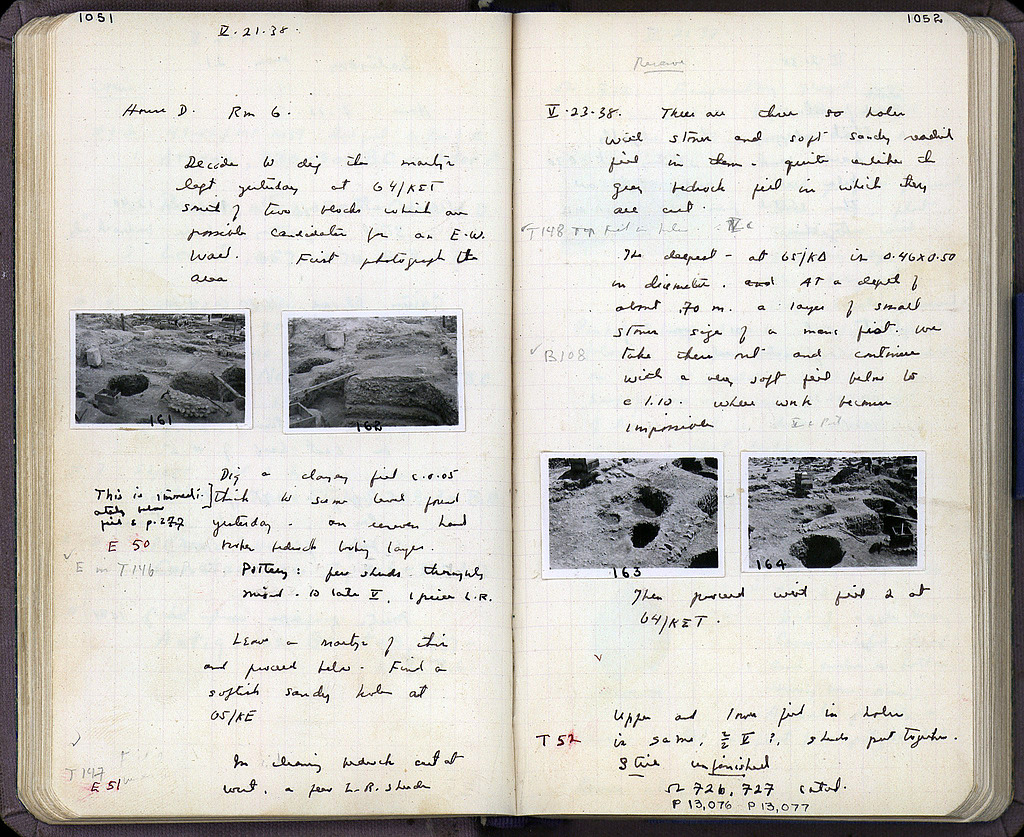 1051
V·21·38·
House D. Rm 6.
Decide to dig the martyr
left yesterday at 64/KET
south of two blocks which are
possible candidates for an E.W.
wall. First photograph the
area
161
162
Dig a clayey fill c.0.05
thick to same level found
yesterday. an uneven hard
bedrock looking layer.
This is immedi-
ately below
fill 2 p.277
E 50
E in T146
Pottery: few sherds. thoroughly
mixed. 10 late V, 1 piece L.R.
Leave a martyr of this
and proceed below. Find a
softish sandy hole at
65/KE
T147
E 51
In cleaning bedrock out at
west, a few L.R. sherds
1052
Reserve
V·23·38. There are three so holes
with stones and soft sandy
fill in them - quite unlike the
grey bedrock fill in which they
are cut.
T148 Top fill in holes
The deepest - at 65/KD is 0.46x0.50
in diameter. and At a depth of
about .70 m. a layer of small
stones size of a mans fist. we
B108
take them out and continue
with a very soft fill below to
c 1.10. where work becomes
impossible
163
164
Then proceed with fill 2 at
64/KET.
Upper and lower fill in holes
T 52
is same, V ?, sherds put together.
Stile unfinished
Ω 726, 727 catal.
P 13,076 P 13,077